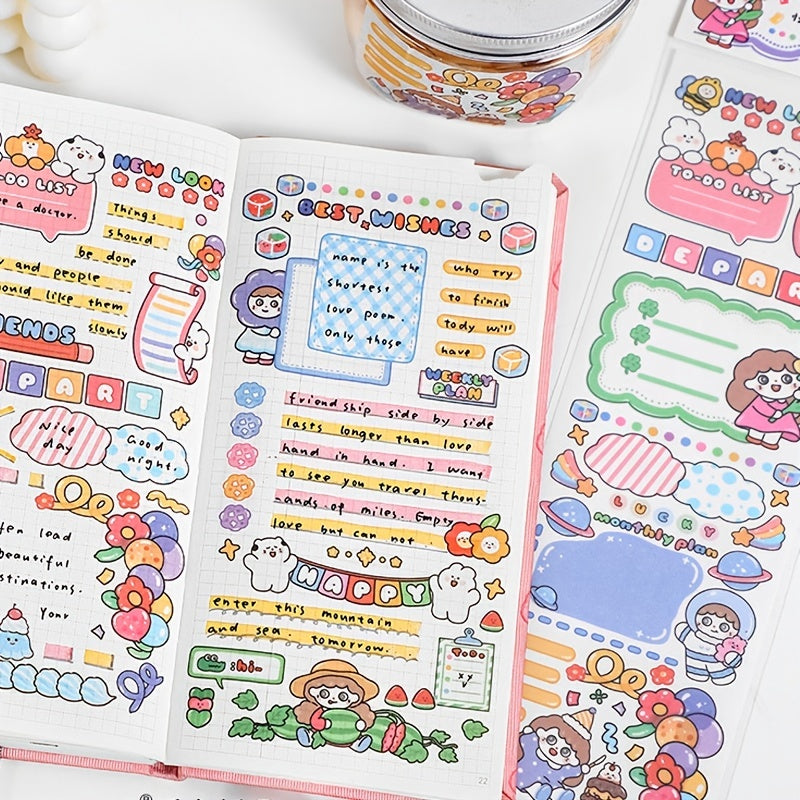 NEW LOOK
O-DO LIST
e a doctor.
Things
should
be done
y and people
ould like them
slowly
IENDS
PART
Nice
day
Good
night.
ten lead
beautiful
stinations.
BEST WISHES
name is the
shortest
love poem.
Only those
who try
to finish
tody will
have
WEEKLY
PLAN
friendship side by side
lasts longer than love
hand in hand. I want
to see you travel thous-
ands of miles. Empty
love but can not.
HAPPY
enter this mountain
and sea. tomorrow.
:hi~
TO DO
x y
22
NEW LOO
TO-DO LIST
DEPAR
LUCKY
monthly plan